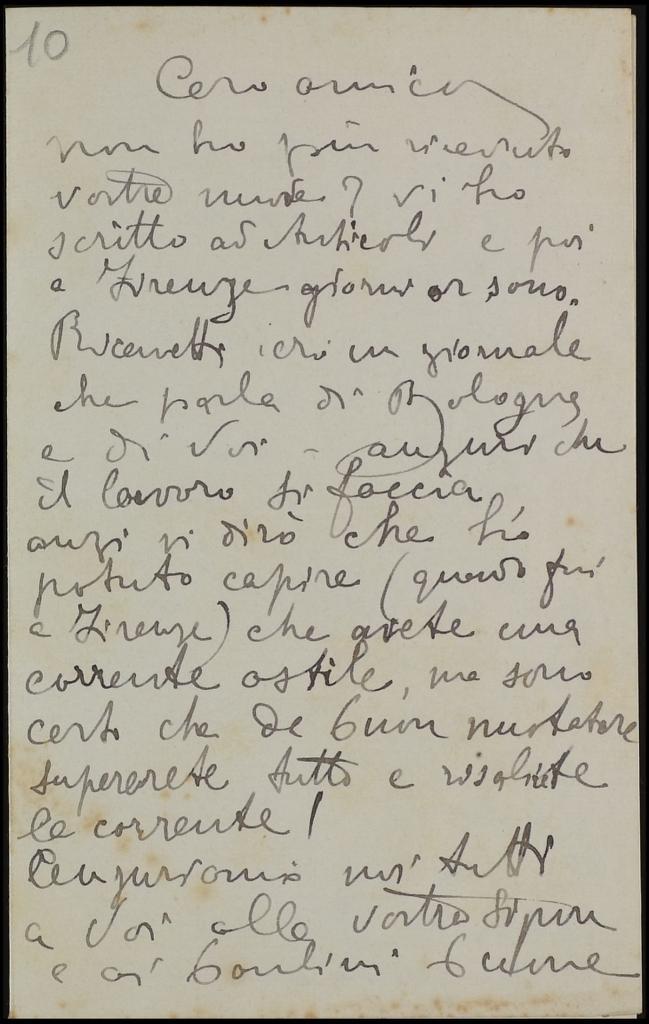 10
Caro amico
non ho più ricevuto
vostre nuove? vi ho
scritto ad Anticoli e poi
a Firenze giorni or sono.
Ricevetti ieri un giornale
che parla di Bologna
e di Voi - auguri che
il lavoro si faccia
anzi vi dirò che ho
potuto capire (quando fui
a Firenze) che avete una
corrente ostile, ma sono
certo che da buon nuotatore
supererete tutto e risalirete
la corrente!
noi tutti
a Voi alla vostra Signora
e ai bambini buone